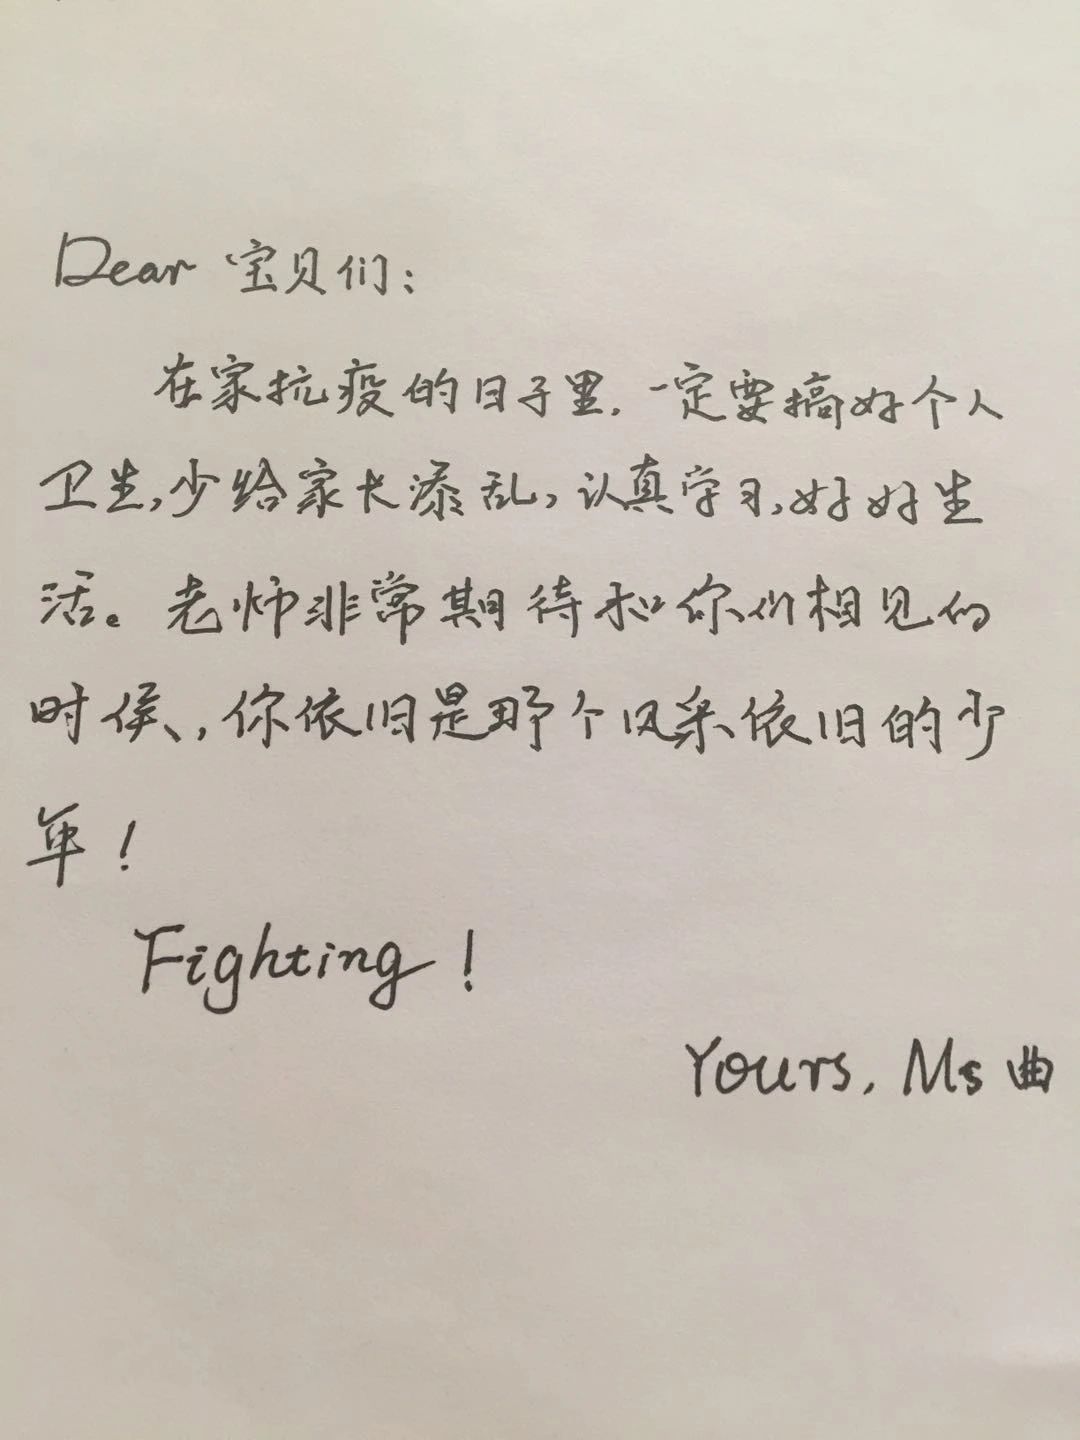 Dear 宝贝们:
在家抗疫的日子里,一定要搞好个人
卫生,少给家长添乱,认真学习,好好生
活。老师非常期待和你们相见的
时候,你依旧是那个风采依旧的少
年!
Fighting!
Yours, Ms 曲